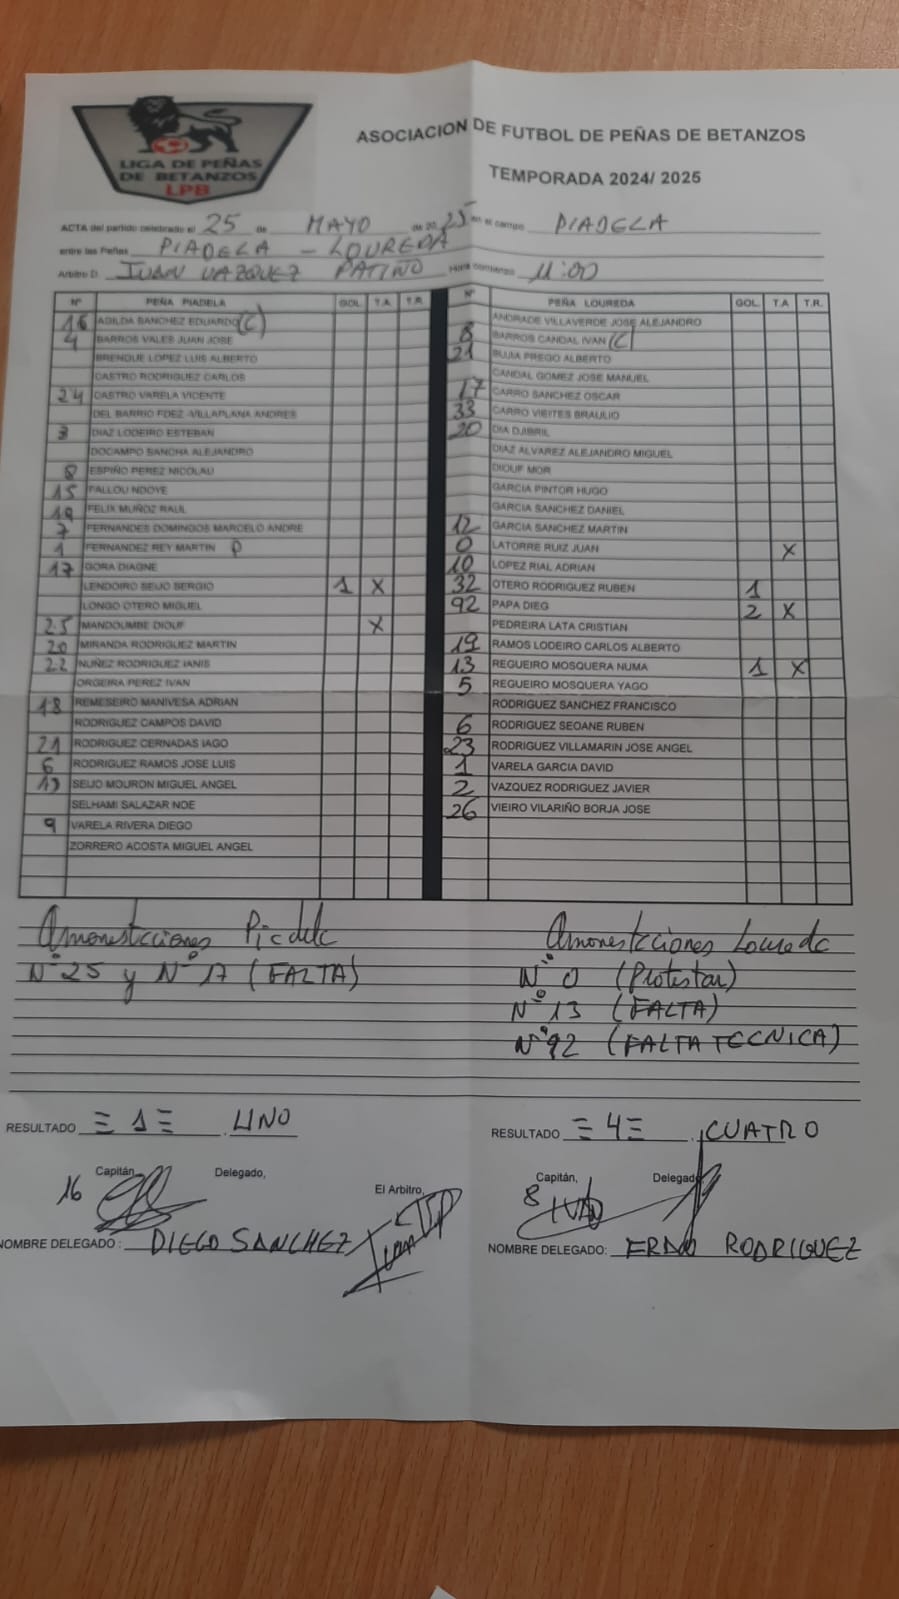 LIGA DE PEÑAS
DE BETANZOS
LPB
ASOCIACION DE FUTBOL DE PEÑAS DE BETANZOS
TEMPORADA 2024/ 2025
ACTA del partido celebrado el 25 de MAYO de 2025 en el campo PIADELA
entre las Peñas PIADELA - LOUREDA
Arbitro D. JUAN VAZQUEZ PATIÑO Hora comienzo 11:00
Nº PEÑA PIADELA GOL T.A T.R. Nº PEÑA LOUREDA GOL. T.A T.R.
16 ABILDA SANCHEZ EDUARDO (C) ANDRADE VILLAVERDE JOSE ALEJANDRO
4 BARROS VALES JUAN JOSE 8 BARROS CANDAL IVAN (C)
BRENQUE LOPEZ LUIS ALBERTO 21 BUJIA PREGO ALBERTO
CASTRO RODRIGUEZ CARLOS CANDAL GOMEZ JOSE MANUEL
24 CASTRO VARELA VICENTE 17 CARRO SANCHEZ OSCAR
DEL BARRIO FDEZ-VILLAPLANA ANDRES 33 CARRO VIEITES BRAULIO
3 DIAZ LODEIRO ESTEBAN 20 DIA DJIBRIL
DOCAMPO SANCHA ALEJANDRO DIAZ ALVAREZ ALEJANDRO MIGUEL
8 ESPIÑO PEREZ NICOLAU DIOUF MOR
15 FALLOU NDOYE GARCIA PINTOR HUGO
19 FELIX MUÑOZ RAUL GARCIA SANCHEZ DANIEL
7 FERNANDES DOMINGOS MARCELO ANDRE 12 GARCIA SANCHEZ MARTIN
1 FERNANDEZ REY MARTIN P 0 LATORRE RUIZ JUAN X
17 GORA DIAGNE 10 LOPEZ RIAL ADRIAN
LENDOIRO SEIJO SERGIO 1 X 32 OTERO RODRIGUEZ RUBEN 1
LONGO OTERO MIGUEL 92 PAPA DIEG 2 X
25 MANDOUMBE DIOUF X PEDREIRA LATA CRISTIAN
20 MIRANDA RODRIGUEZ MARTIN 19 RAMOS LODEIRO CARLOS ALBERTO
22 NUÑEZ RODRIGUEZ IANIS 13 REGUEIRO MOSQUERA NUMA 1 X
ORGEIRA PEREZ IVAN 5 REGUEIRO MOSQUERA YAGO
18 REMESEIRO MANIVESA ADRIAN RODRIGUEZ SANCHEZ FRANCISCO
RODRIGUEZ CAMPOS DAVID 6 RODRIGUEZ SEOANE RUBEN
21 RODRIGUEZ CERNADAS IAGO 23 RODRIGUEZ VILLAMARIN JOSE ANGEL
6 RODRIGUEZ RAMOS JOSE LUIS 1 VARELA GARCIA DAVID
SEIJO MOURON MIGUEL ANGEL 2 VAZQUEZ RODRIGUEZ JAVIER
SELHAMI SALAZAR NOE 26 VIEIRO VILARIÑO BORJA JOSE
9 VARELA RIVERA DIEGO
ZORRERO ACOSTA MIGUEL ANGEL
Amonestaciones Piadela
Nº 25 y Nº 17 (FALTA)
Amonestaciones Loureda
Nº 0 (Protestar)
Nº 13 (FALTA)
Nº 92 (FALTA TECNICA)
RESULTADO =1= . UNO
RESULTADO =4= . CUATRO
16 Capitán, Delegado, El Arbitro,
8 Capitán, Delegado,
IVAN
NOMBRE DELEGADO : DIEGO SANCHEZ
NOMBRE DELEGADO: RODRIGUEZ